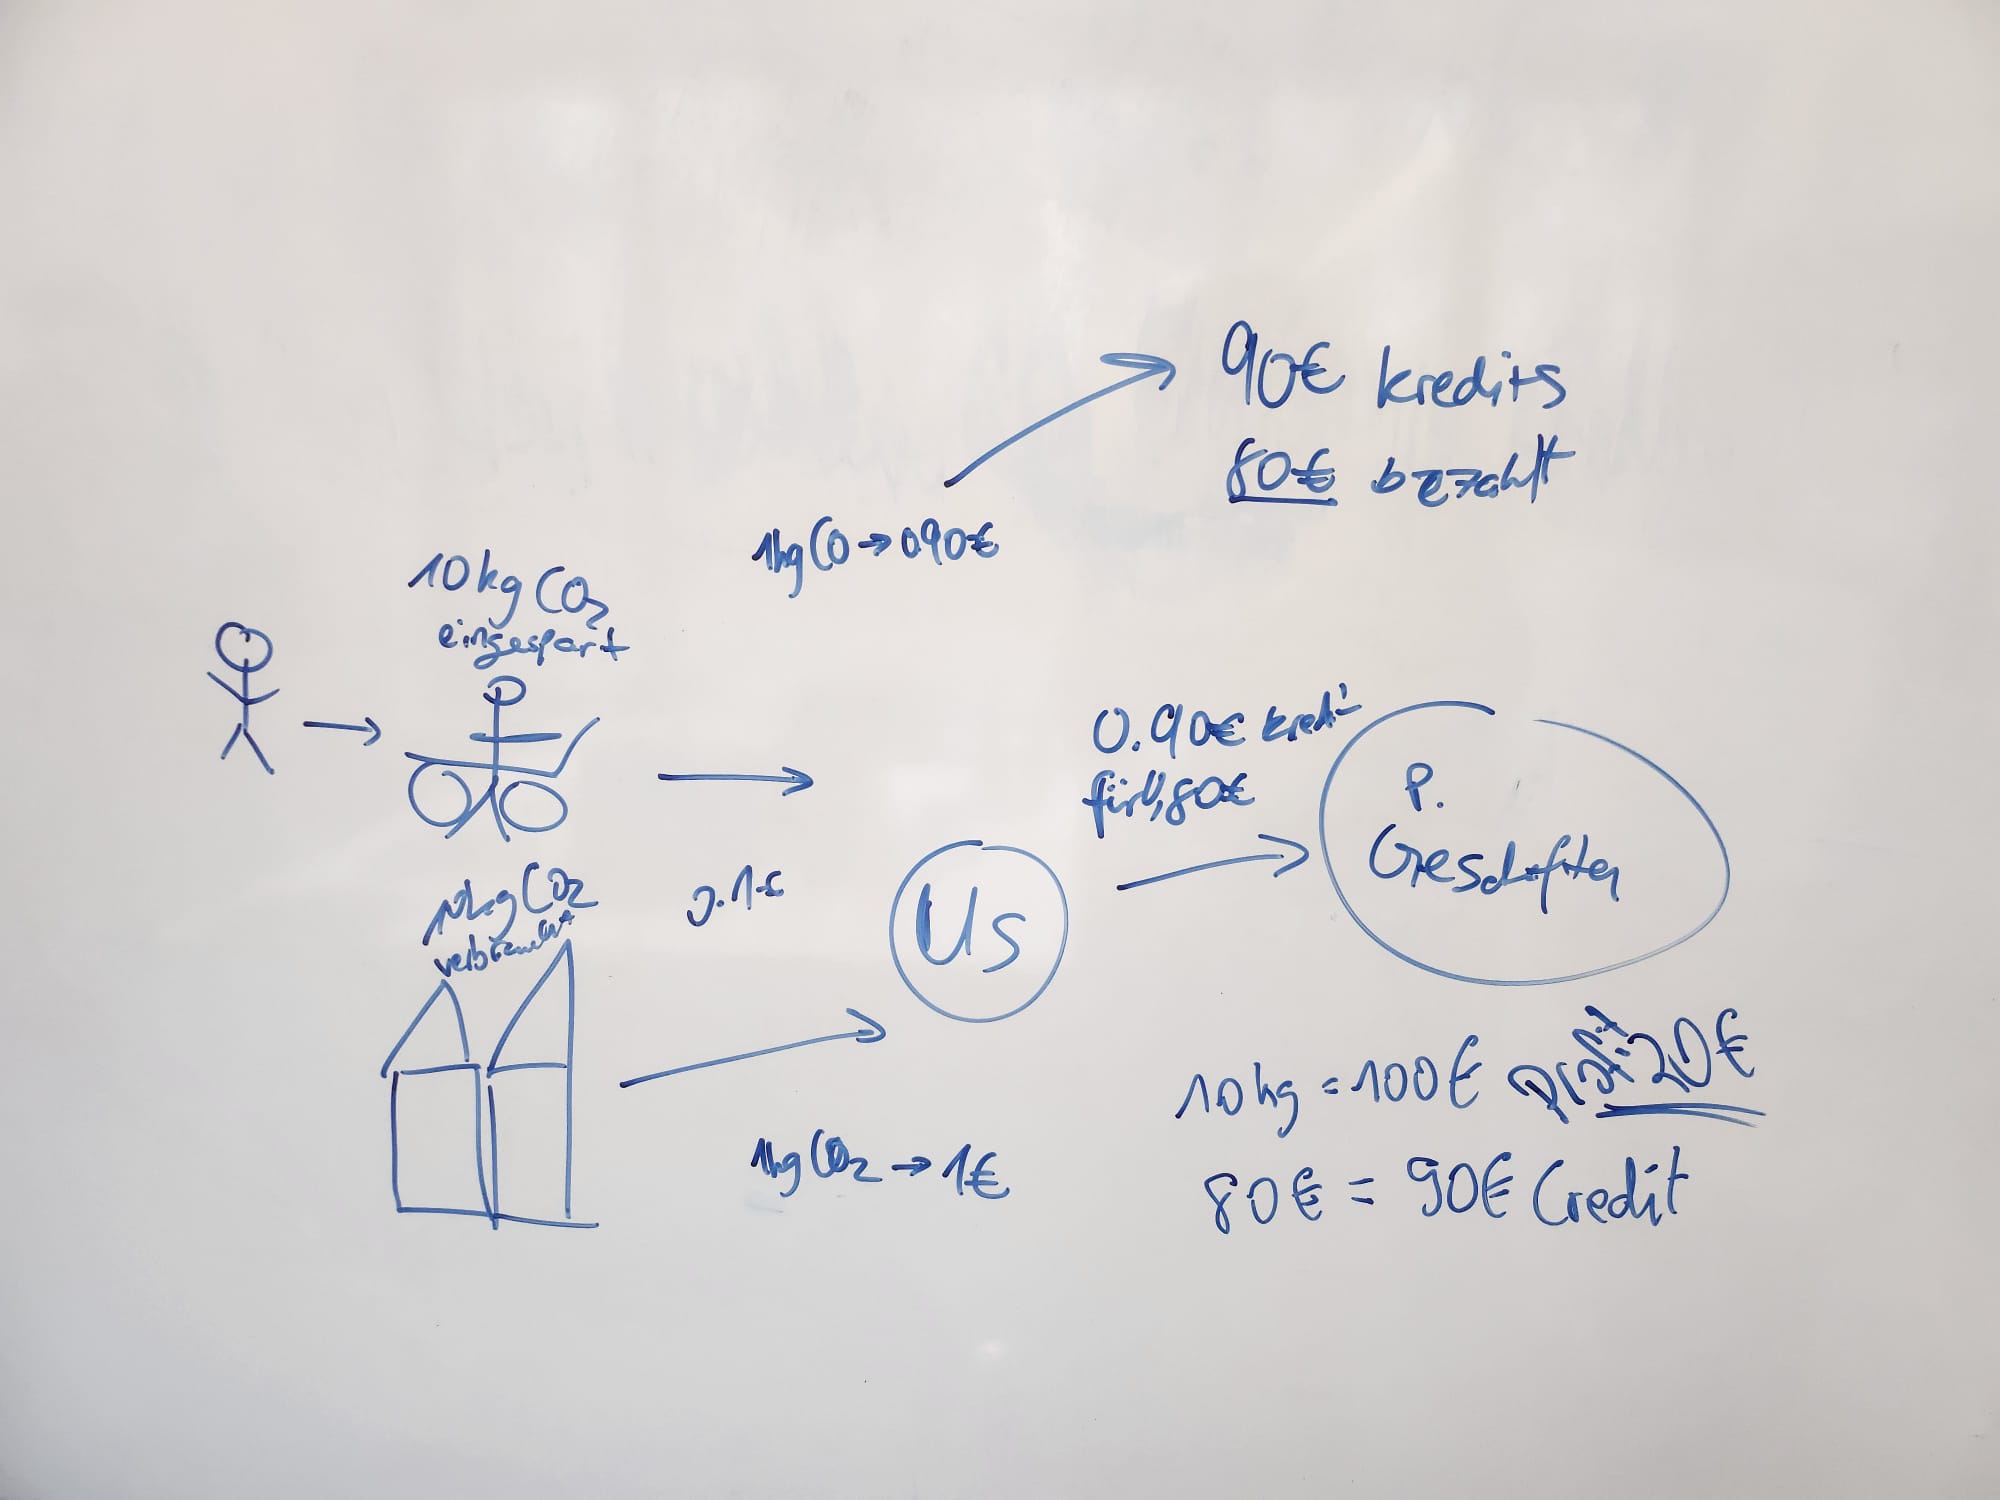 90€ kredits
80€ bezahlt
1kg CO → 0.90€
10kg CO2
eingespart
0.90€ kredit
für 0,80€
P.
Geschäften
10kg CO2
verbraucht
0.1€
Us
10kg = 100€ profit 20€
1kg CO2 → 1€
80€ = 90€ Credit